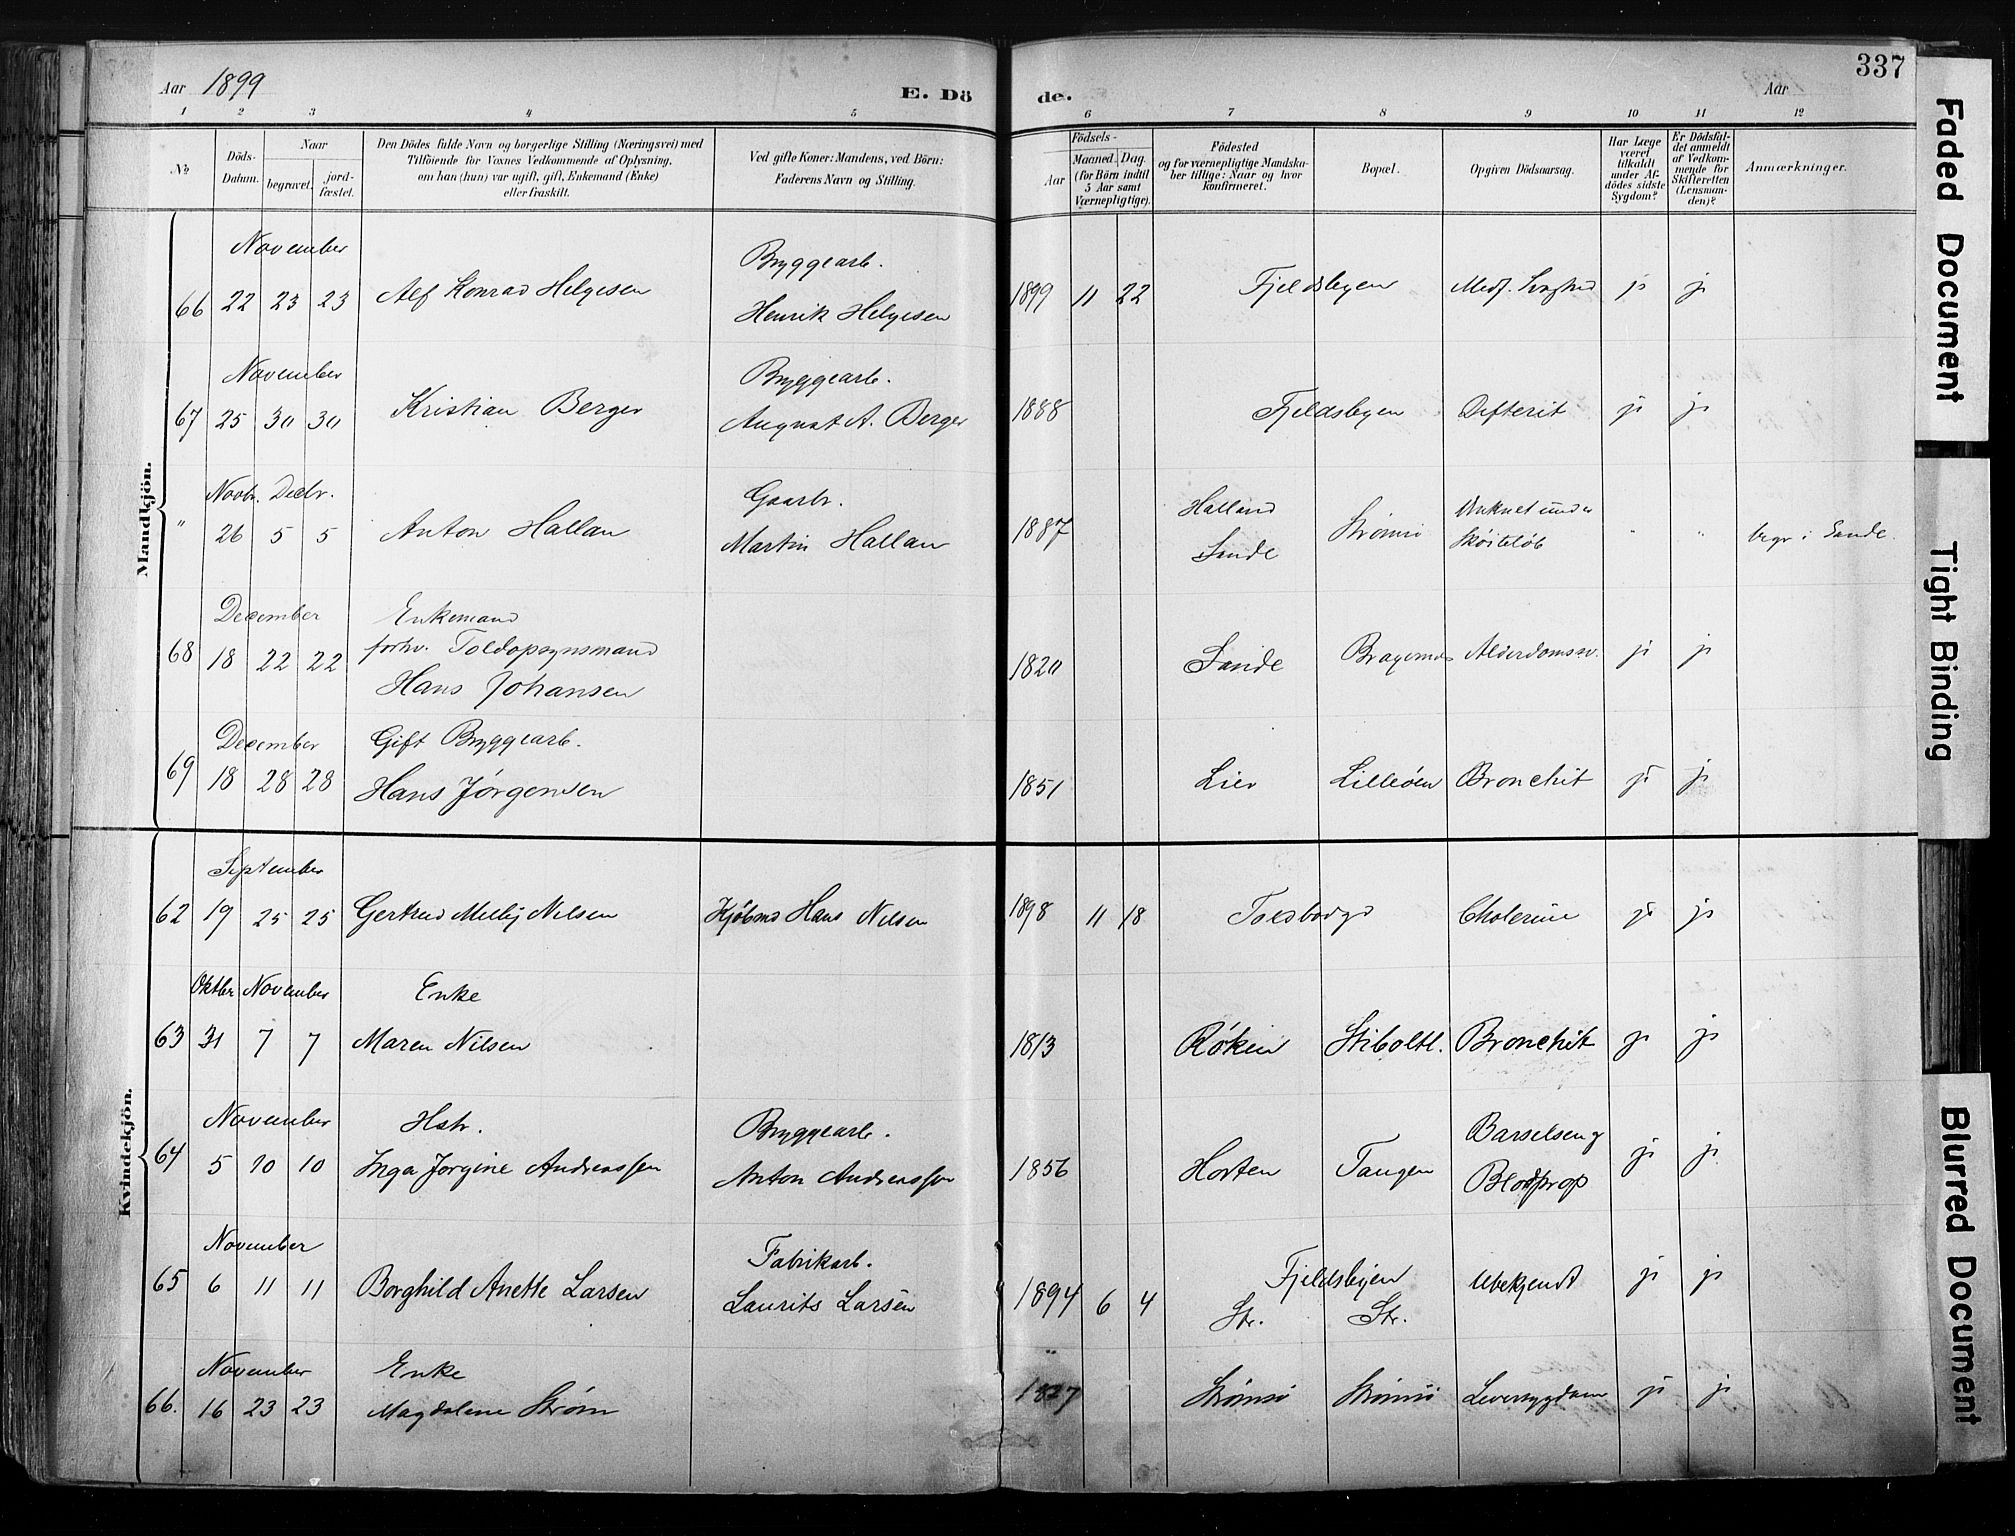 Aar 1899
E. Döde.
Aar
337
1 2 3 4 5 6 7 8 9 10 11 12
No
Döds-Datum.
Naar
begravet.
jordfæstet.
Den Dödes fulde Navn og borgerlige Stilling (Næringsvei) med
Tilföiende for Voxnes Vedkommende af Oplysning,
om han (hun) var ugift, gift, Enkemand (Enke)
eller fraskilt.
Ved gifte Koner: Mandens, ved Börn:
Faderens Navn og Stilling.
Födsels-
Aar
Maaned. Dag.
(for Börn indtil
5 Aar samt
Værnepligtige).
Födested
og for værnepligtige Mandska-
ber tillige: Naar og hvor
konfirmeret.
Bopæl.
Opgiven Dödsaarsag.
Har Læge
været
tilkaldt
under Af-
dödes sidste
Sygdom?
Er Dödsfal-
det anmeldt
af Vedkom-
mende for
Skifteretten
(Lensman-
den)?
Anmærkninger.
Mandkjön.
November
Byggearb.
66 22 23 23 Alf Konrad Helgesen
Henrik Helgesen
1899 11 22 Fjeldsbyen Medf. Svaghed ja ja
November
Byggearb.
67 25 30 30 Kristian Berger
August A. Berger
1888 Fjeldsbyen Difterit ja ja
Novbr. Decbr.
Gaarbr.
" 26 5 5 Anton Hallan
Martin Hallan
1887 Halland
Sande
Strömsö
Druknet under
Skøiteløb
" " begr i Sande.
December
Enkemand
68 18 22 22 forhv. Toldopsynsmand
Hans Johansen
1820 Sande Bragernds Alderdomssv. ja ja
December
Gift Byggearb.
69 18 28 28 Hans Jørgensen
1851 Lier Lilleøen Bronchit ja ja
Kvindekjön.
September
62 19 25 25 Gertrud Melby Nilsen
Kjöbmd Hans Nilsen
1898 11 18 Toldbodgd Cholerine ja ja
Oktbr November
Enke
63 31 7 7 Maren Nilsen
1813 Røken Stiboltl. Bronchit ja ja
November
Hstr.
Byggearb.
64 5 10 10 Inga Jørgine Andreassen
Anton Andreassen
1856 Horten Tangen Barselseng
Blodprop
ja ja
November
Fabrikarb.
65 6 11 11 Borghild Anette Larsen
Laurits Larsen
1894 6 4 Fjeldsbyen
Str. Str.
Ubekjendt ja ja
November
Enke
66. 16 23 23 Magdalene Strøm
1827 Strömsö Strömsö Leversygdom ja ja
Faded Document
Tight Binding
Blurred Document